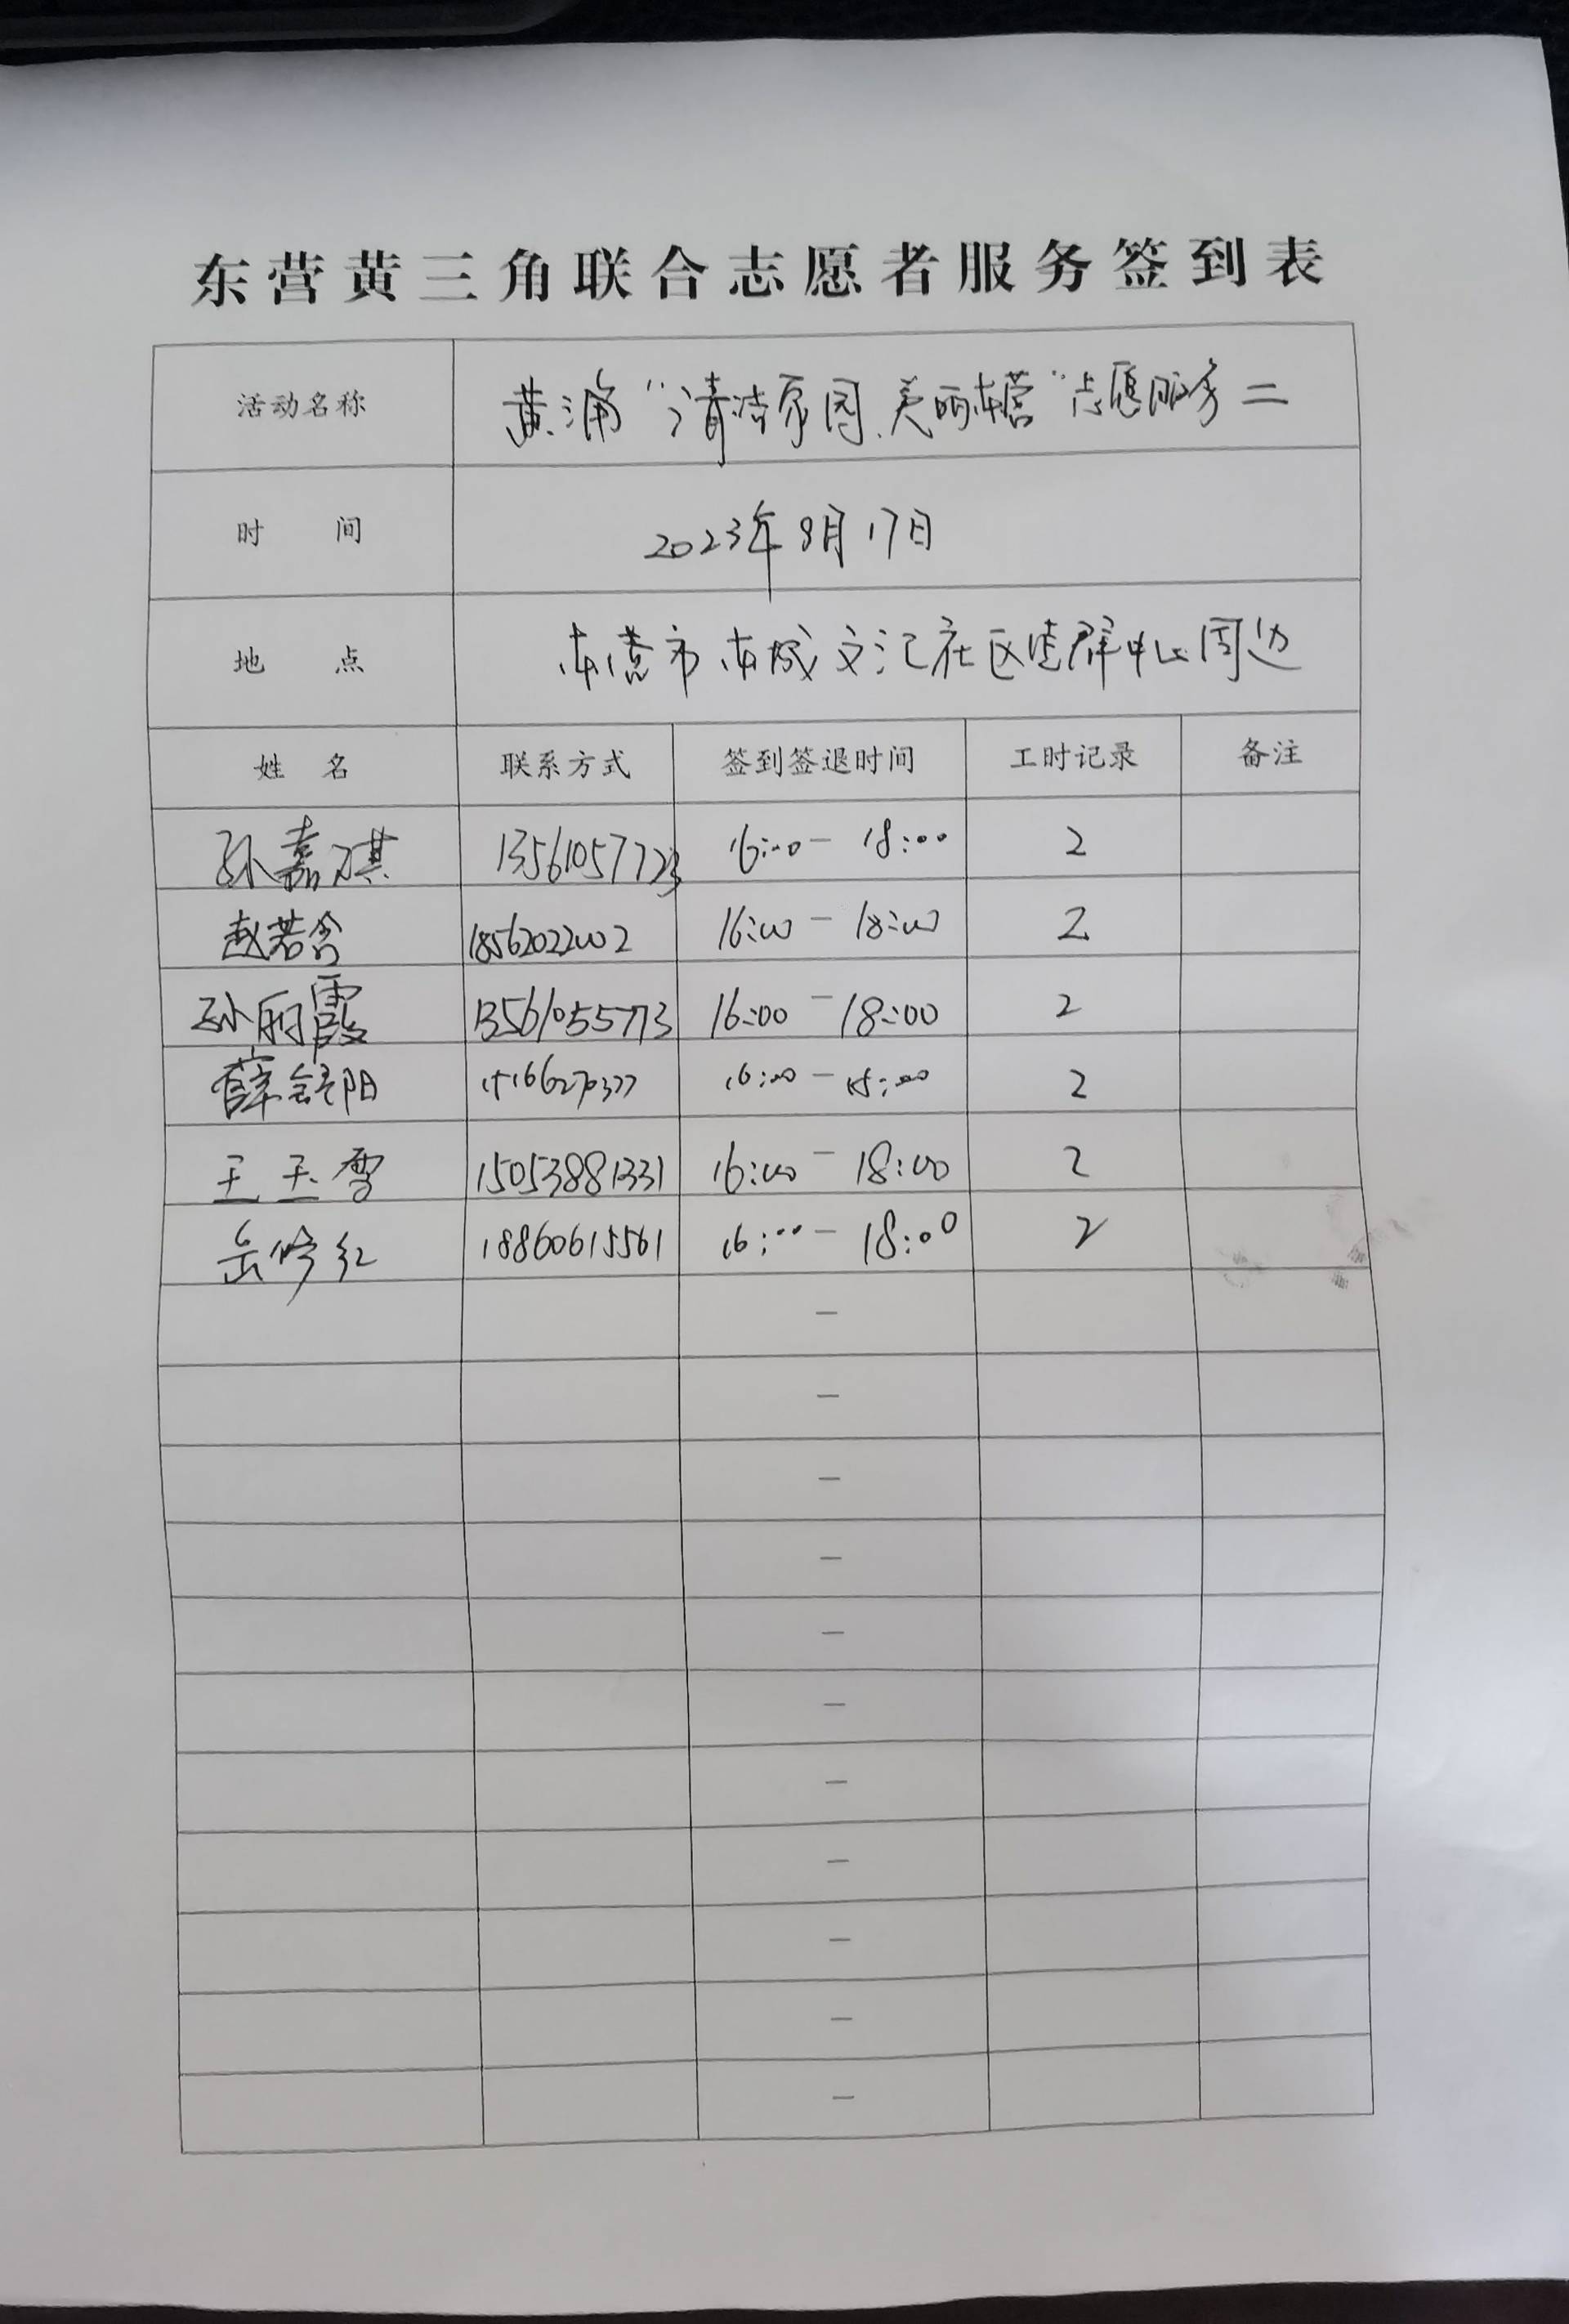 东营黄三角联合志愿者服务签到表
活动名称 黄浦“清洁家园、美丽东营”志愿服务二
时 间 2023年8月17日
地 点 东营市东城文汇社区党群中心周边
姓 名 联系方式 签到签退时间 工时记录 备注
孙嘉祺 13561057723 16:00 - 18:00 2
赵若含 18562022002 16:00 - 18:00 2
孙丽霞 13561055773 16:00 - 18:00 2
薛舒阳 16:00 - 18:00 2
王玉雪 15053881331 16:00 - 18:00 2
岳修红 18860615561 16:00 - 18:00 2
-
-
-
-
-
-
-
-
-
-
-